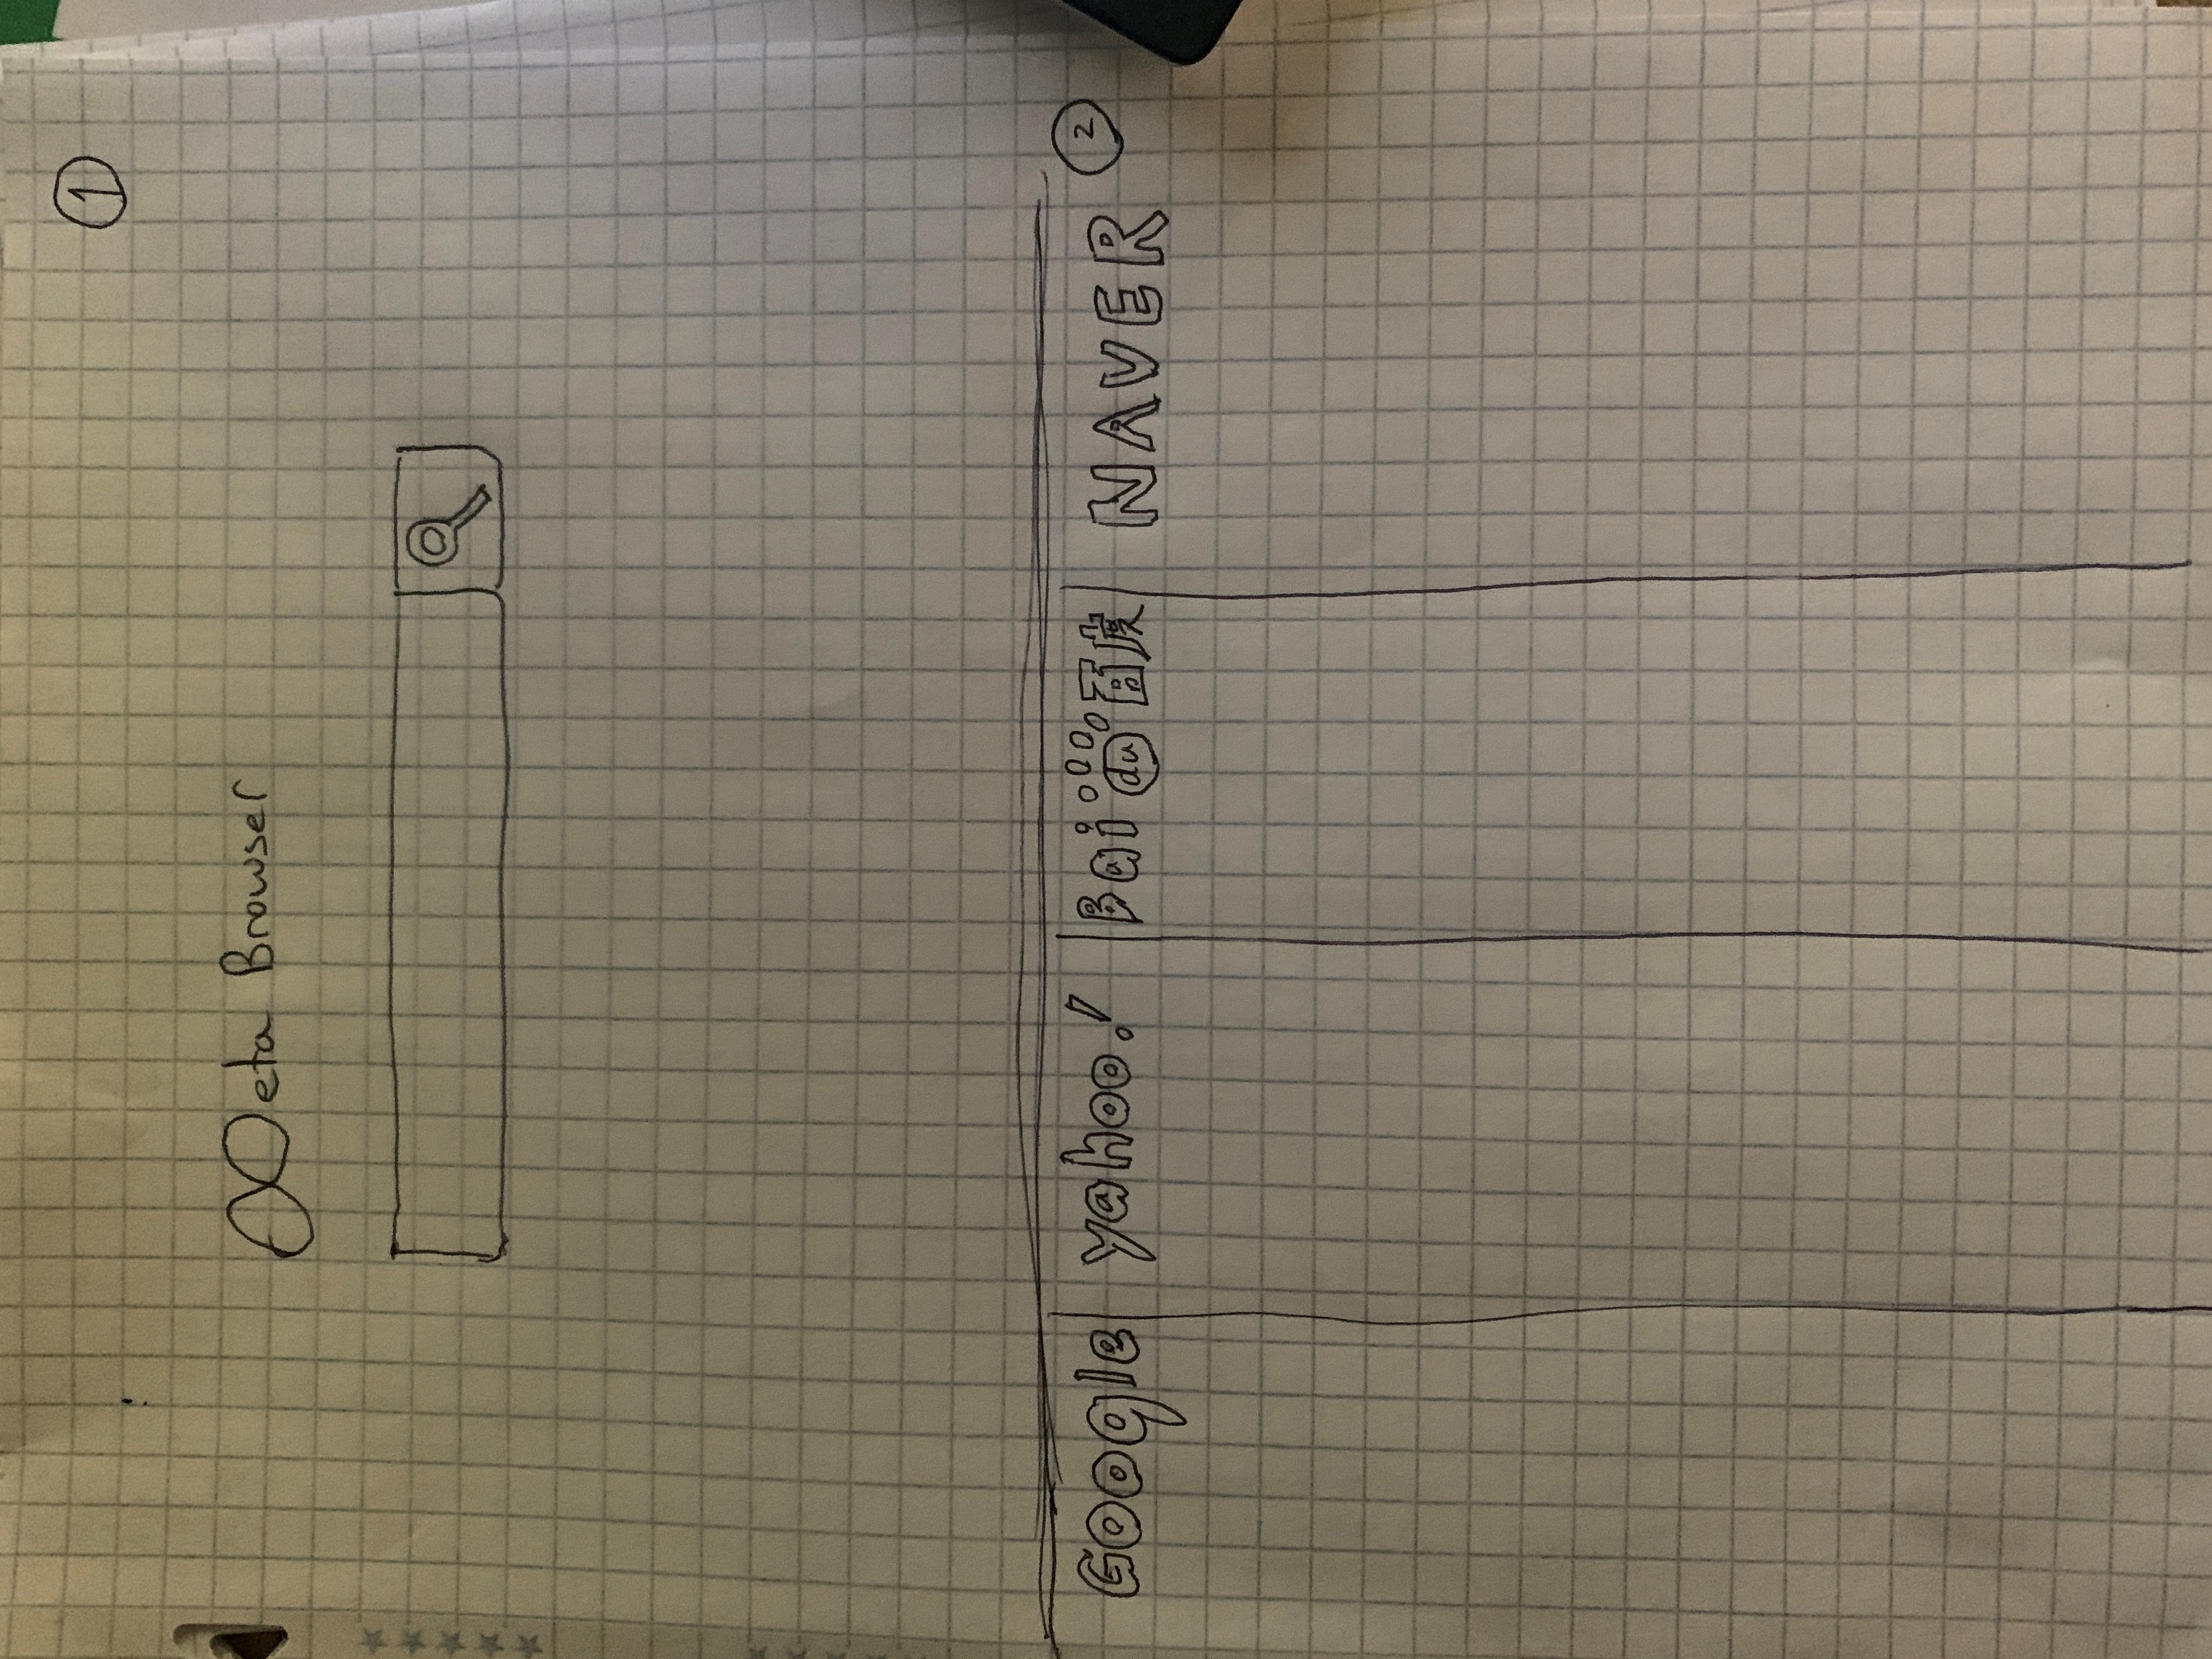 1
Meta Browser
2
Google
yahoo!
Baidu百度
NAVER